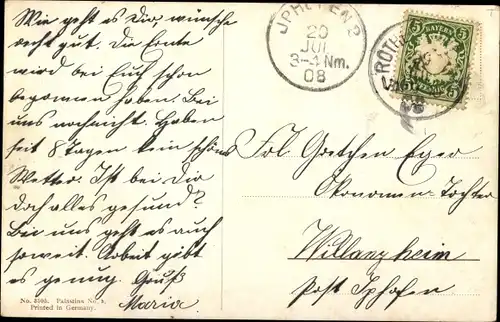 Wie geht es Dir, wünsche
recht gut. Die Ernte
wird bei Euch schon
begonnen haben. Bei
uns noch nicht. Haben
seit 8 Tagen kein schönes
Wetter. Ist bei Dir
doch alles gesund?
Bei uns geht es auch
soweit. Arbeit gibt
es genug. Gruß
Maria
No. 3103. Palästina No. 3.
Printed in Germany.
IPHOFEN 2
20
JUL
3-4 Nm.
08
5 BAYERN 5
5 PFENNIG 5
ROTHE
Frl. Gretchen Eger
Ökonomen-Tochter
Willanzheim
Post Iphofen